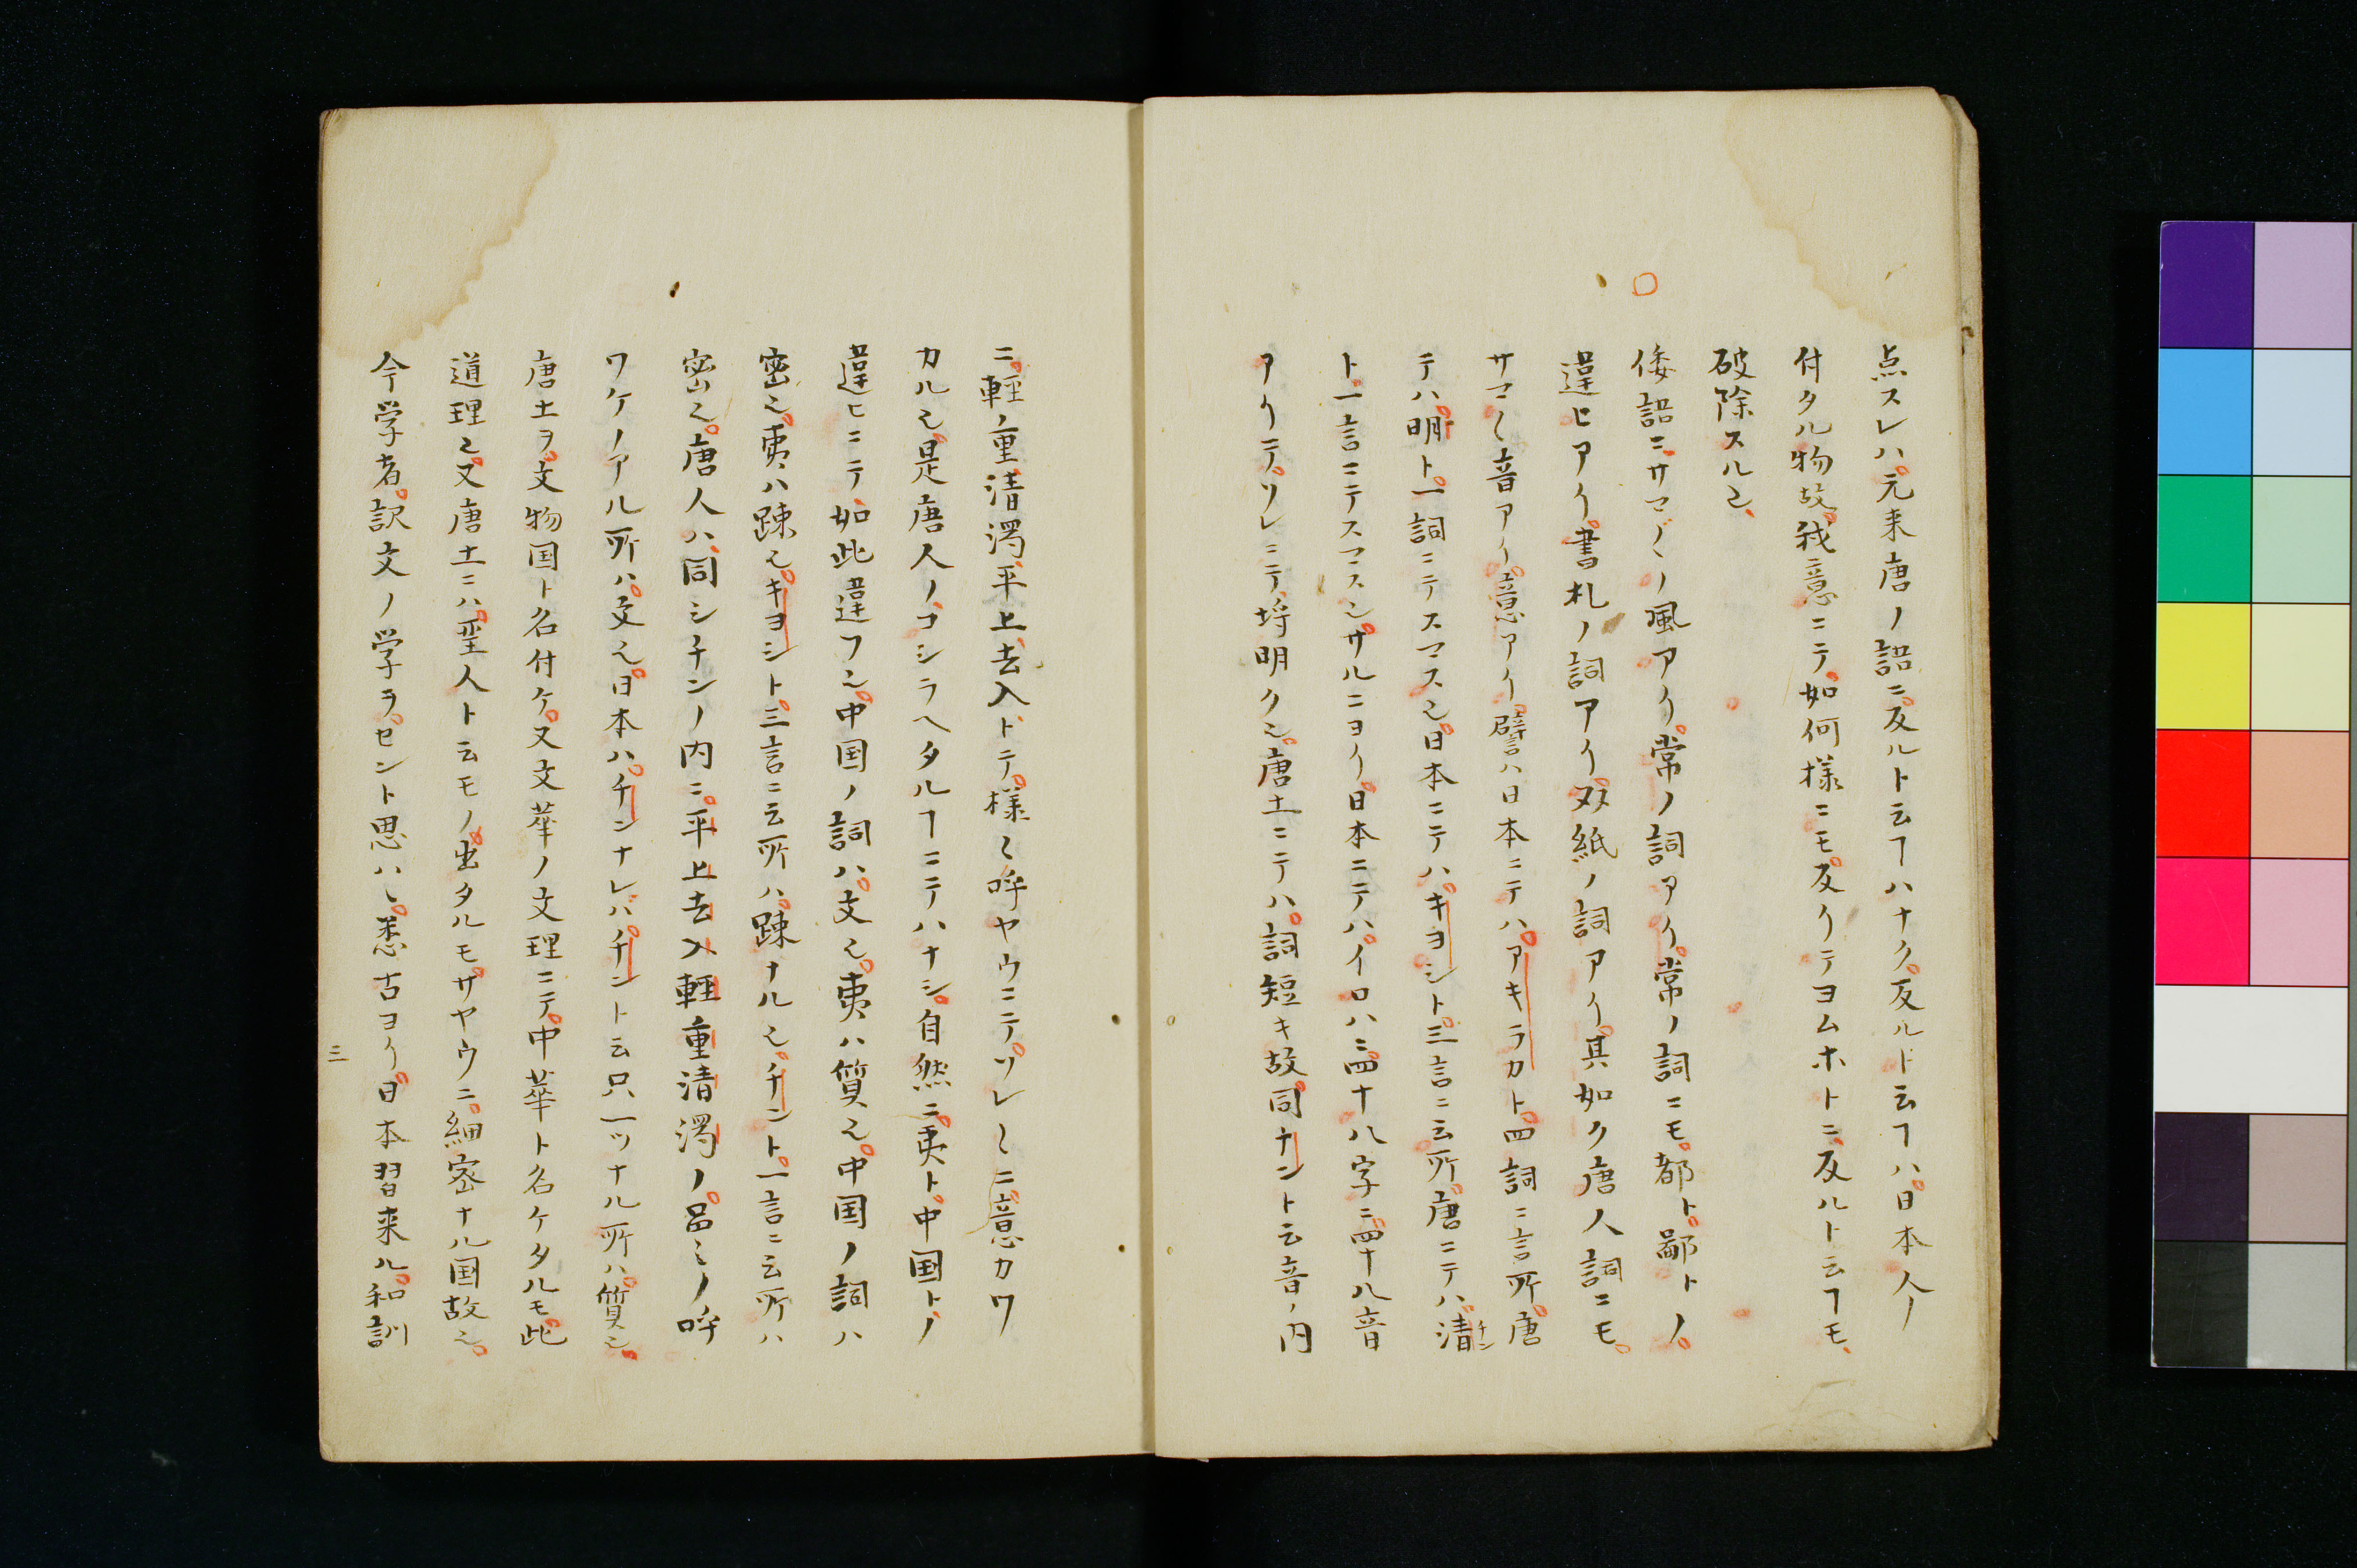 点スレハ元来唐ノ語ニ反ルト云ヿハナク反ルト云ヿハ日本人ノ
付タル物故我意ニテ如何様ニモ反リテヨムホトニ反ルト云ヿモ
破除スル也
倭語ニサマ〲ノ風アリ常ノ詞アリ常ノ詞ニモ都ト鄙トノ
違ヒアリ書札ノ詞アリ双紙ノ詞アリ其如ク唐人詞ニモ
サマ〱音アリ意アリ譬ハ日本ニテハアキラカト四詞ニ言所唐
テハ明ト一詞ニテスマス也日本ニテハキヨシト三言ニ云所唐ニテハ清チン
ト一言ニテスマス也サルニヨリ日本ニテハイロハ四十八字ニ四十八音
アリテソレニテ埒明ク也唐土ニテハ詞短キ故同チント云音ノ内
ニ輕ノ重清濁平上去入トテ様〱呼ヤウニテソレ〱ニ意カワ
カル也是唐人ノコシラヘタルヿニテハナシ自然ニ夷ト中国トノ
違ヒニテ如此違フ也中国ノ詞ハ文也夷ハ質也中国ノ詞ハ
密也夷ハ踈也キヨシト三言ニ云所ハ踈ナル也チント一言ニ云所ハ
密也唐人ハ同シチンノ内ニ平上去入輕重清濁ノ品〻ノ呼
ワケノアル所ハ文也日本ハチンナレハチント云只一ツナル所ハ質也
唐土ヲ文物国ト名付ケ又文華ノ文理ニテ中華ト名ケタルモ此
道理也又唐土ニハ聖人ト云モノ出タルモサヤウニ細密ナル国故也
今学者訳文ノ学ヲセント思ハヽ悉古ヨリ日本習来ル和訓
三